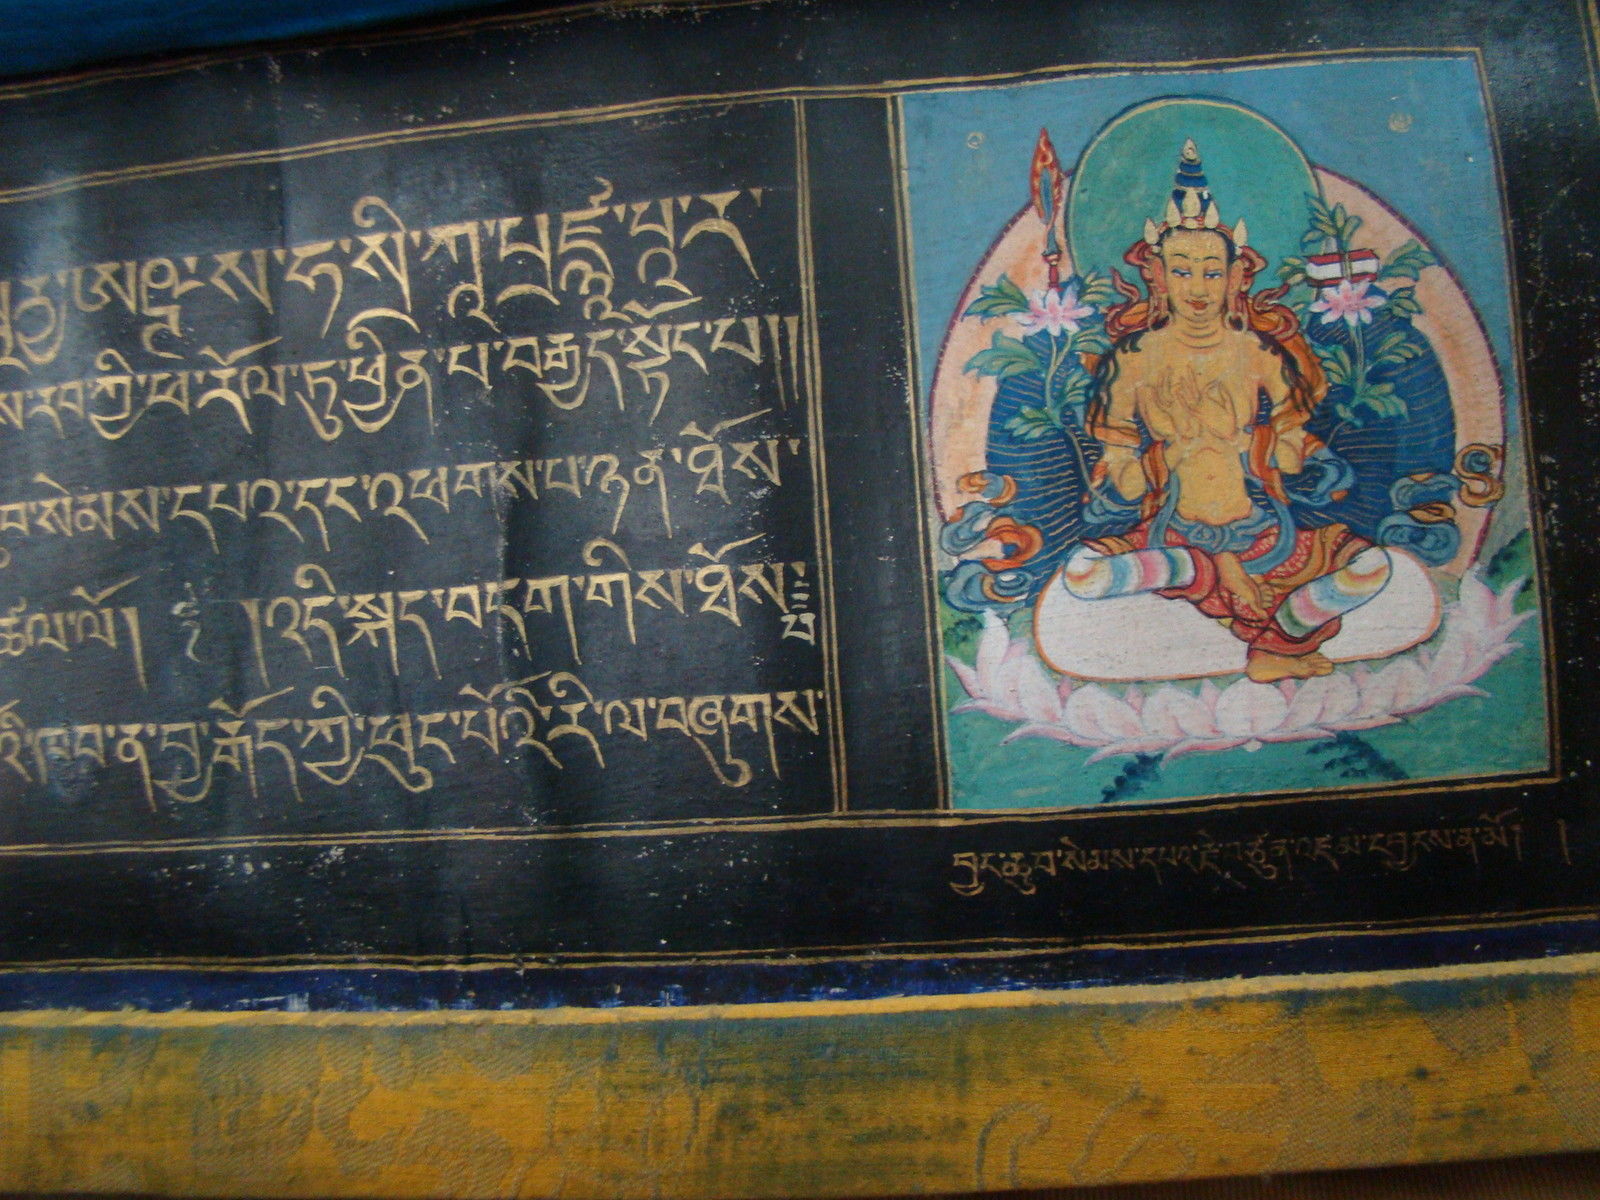 ཨཥྚ་ས་ཧ་སྲི་ཀཱ་པྲཛྙཱ་པཱ་ར་
ས་རབ་ཀྱི་ཕ་རོལ་ཏུ་ཕྱིན་པ་བརྒྱད་སྟོང་པ།།
སེམས་དཔའ་དང་འཕགས་པ་ཉན་ཐོས་
ཚལ་ལོ། །འདི་སྐད་བདག་གིས་ཐོས་པ
བྱ་རྒོད་ཀྱི་ཕུང་པོའི་རི་ལ་བཞུགས་
བྱང་ཆུབ་སེམས་དཔའ་རྗེ་བཙུན་འཇམ་དབྱངས་ན་མོ། །